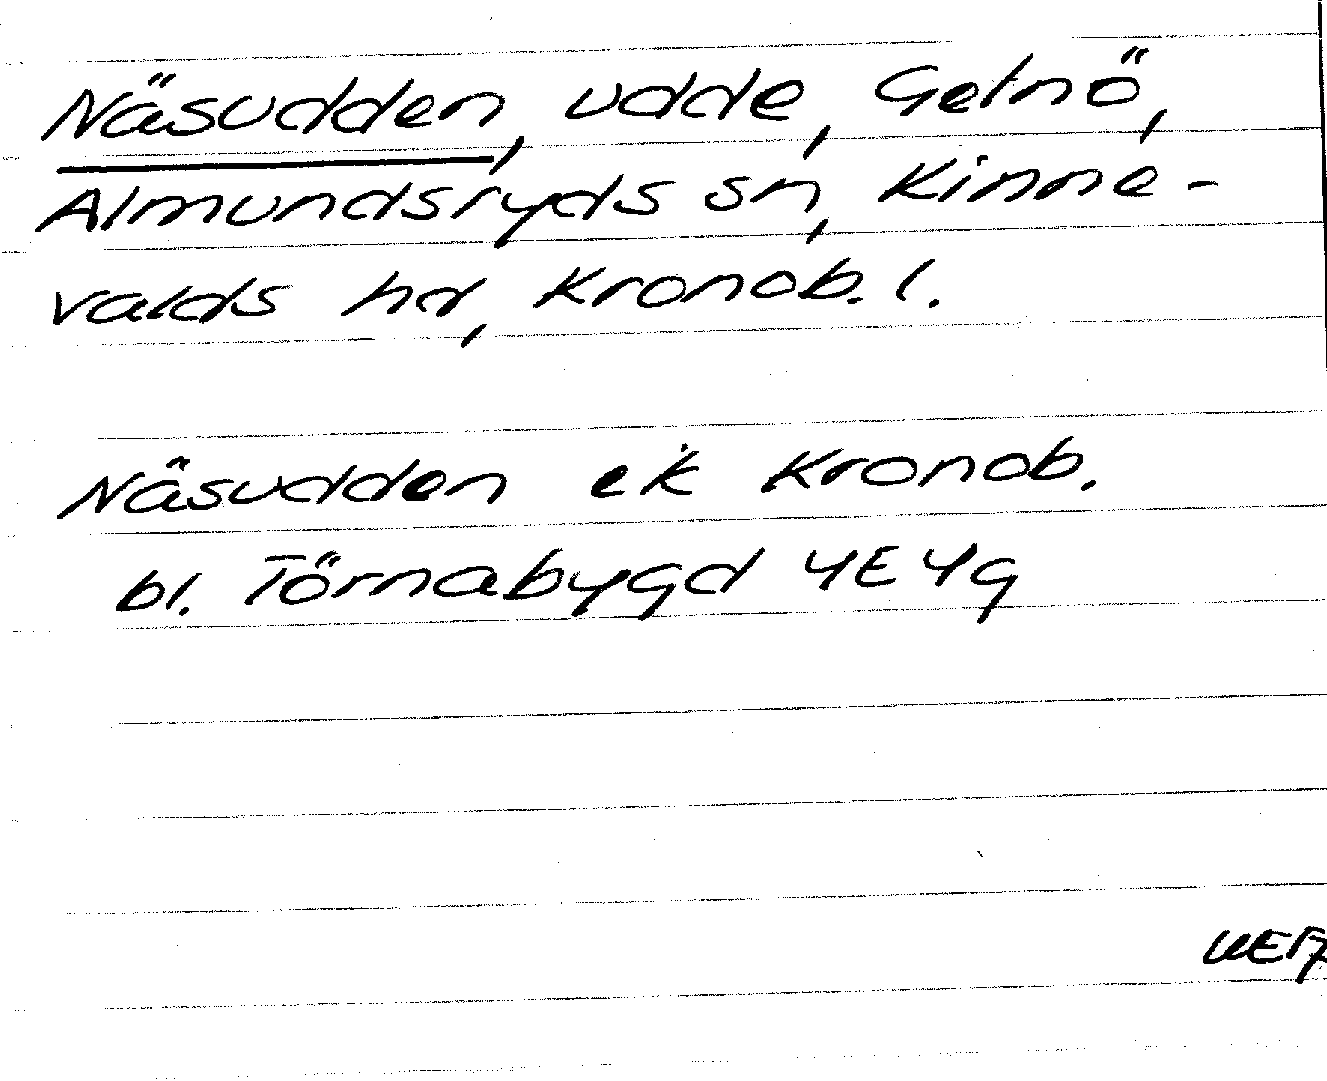 Näsudden, udde, Getnö,
Almundsryds sn, Kinne-
valds hd, Kronob. l.
Näsudden ek Kronob.
bl. Törnabygd 4E4g